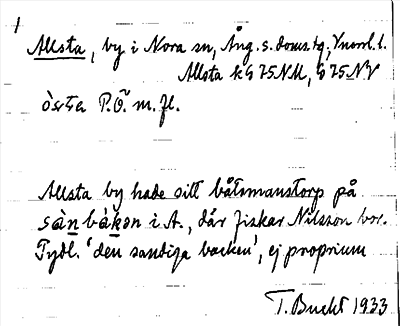 1
Allsta, by i Nora sn, Ång. s. doms. tg, Ynorrl. l.
Allsta k G 75 NM, G 75 NV
òsta P.Ö. m. fl.
Allsta by hade sitt båtsmanstorp på
sàn bàkən i A., där fiskar Nilsson bor.
Tydl. 'den sandiga backen', ej proprium
T. Bucht 1933